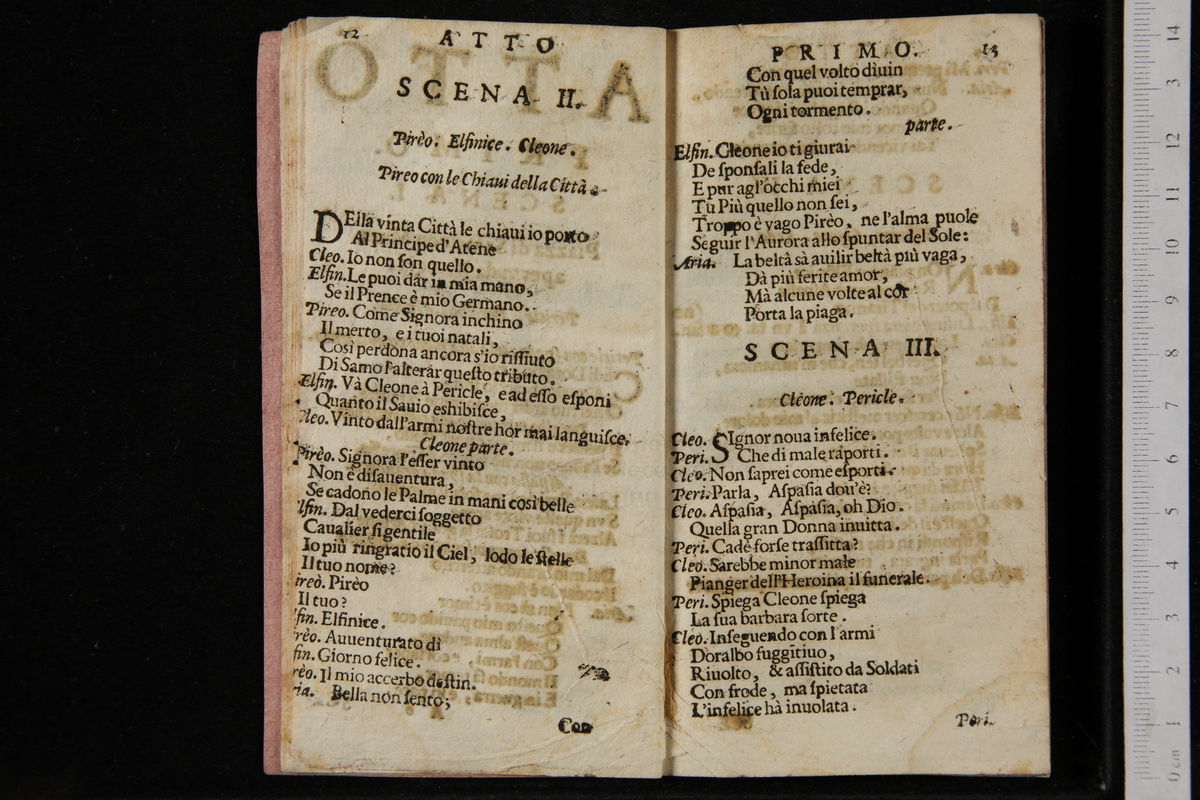 12
ATTO
SCENA II.
Pirèo. Elfinice. Cleone.
Pireo con le Chiaui della Città.
DElla vinta Città le chiaui io porto
Al Principe d'Atene
Cleo. Io non ſon quello.
Elfin. Le puoi dar in mia mano,
Se il Prence è mio Germano.
Pireo. Come Signora inchino
Il merto, e i tuoi natali,
Così perdona ancora s'io riffiuto
Di Samo l'alterar queſto tributo.
Elfin. Và Cleone à Pericle, e ad eſſo eſponi
Quanto il Sauio eshibiſce,
Cleo. Vinto dall'armi noſtre hor mai languiſce.
Cleone parte.
Pirèo. Signora l'eſſer vinto
Non è diſauentura,
Se cadono le Palme in mani così belle
lfin. Dal vederci ſoggetto
Caualier ſi gentile
Io più ringratio il Ciel, lodo le ſtelle
Il tuo nome?
ireò. Pirèo
Il tuo?
lfin. Elfinice.
rèo. Auuenturato dì
fin. Giorno felice.
rèo. Il mio accerbo deſtin.
ria. Bella non ſento;
Con
PRIMO. 13
Con quel volto diuin
Tù ſola puoi temprar,
Ogni tormento.
parte.
Elfin. Cleone io ti giurai
De ſponſali la fede,
E pur agl'occhi miei
Tù Più quello non ſei,
Troppo è vago Pirèo, ne l'alma puole
Seguir l'Aurora allo ſpuntar del Sole:
Aria. La beltà sà auilir beltà più vaga,
Dà più ferite amor,
Mà alcune volte al cor
Porta la piaga.
SCENA III.
Cleone. Pericle.
Cleo. SIgnor noua infelice.
Peri. Che di male raporti.
Cleo. Non ſaprei come eſporti.
Peri. Parla, Aſpaſia dou'è?
Cleo. Aſpaſia, Aſpaſia, oh Dio.
Quella gran Donna inuitta.
Peri. Cadè forſe traffitta?
Cleo. Sarebbe minor male
Pianger dell'Heroina il funerale.
Peri. Spiega Cleone ſpiega
La ſua barbara ſorte.
Cleo. Inſeguendo con l'armi
Doralbo fuggitiuo,
Riuolto, & aſſiſtito da Soldati
Con frode, ma ſpietata
L'infelice hà inuolata.
Peri.
14
13
12
11
10
9
8
7
6
5
4
3
2
1
0 cm